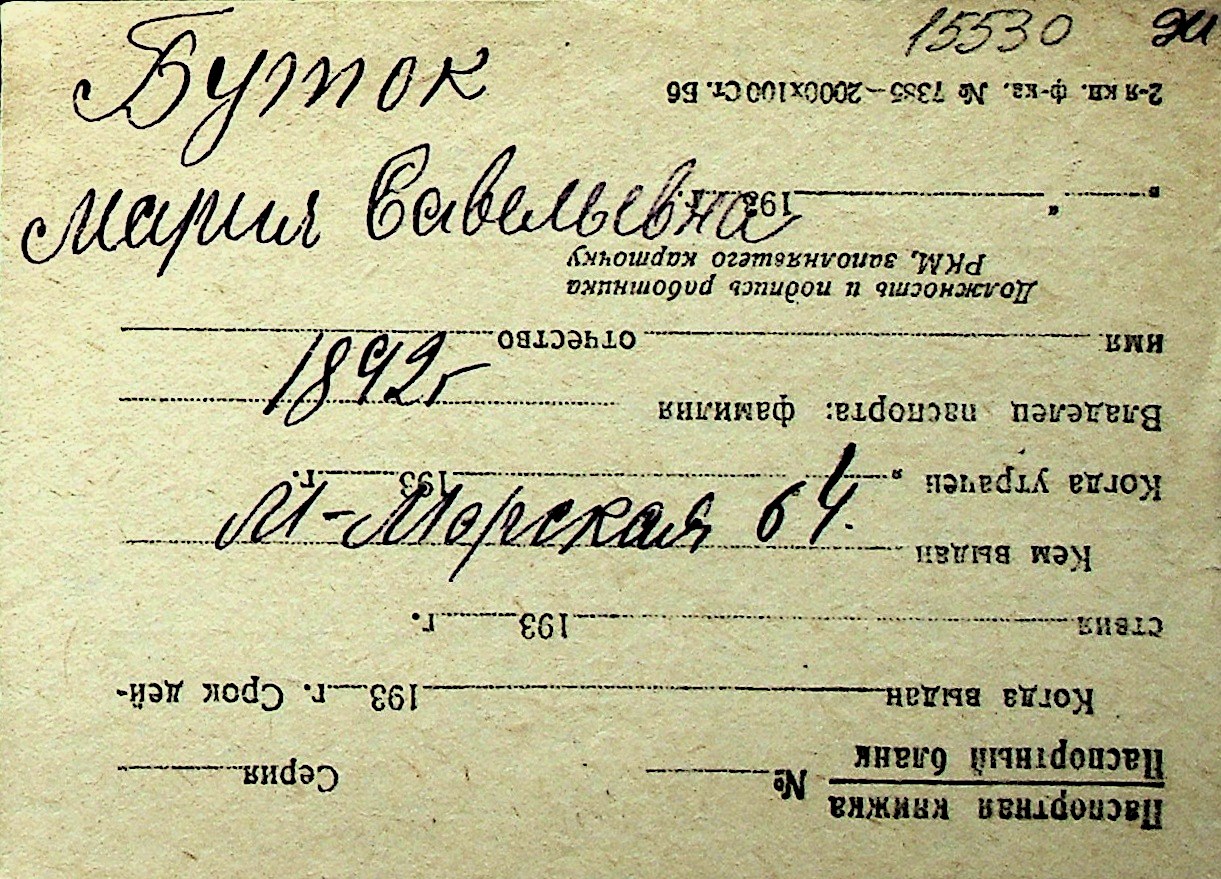 15530
Буток
Мария Савельевна
1892г
М-Морская 64.
Паспортная книжка
Паспортный бланк № Серия
Когда выдан 193 г. Срок дей-
ствия 193 г.
Кем выдан
Когда утрачен „ 193 г.
Владелец паспорта: фамилия
имя отчество
Должность и подпись работника
РКМ, заполнявшего карточку
„ " 193 г.
2-я кн. ф-ка. № 7385—2000х100 Ст. Б6